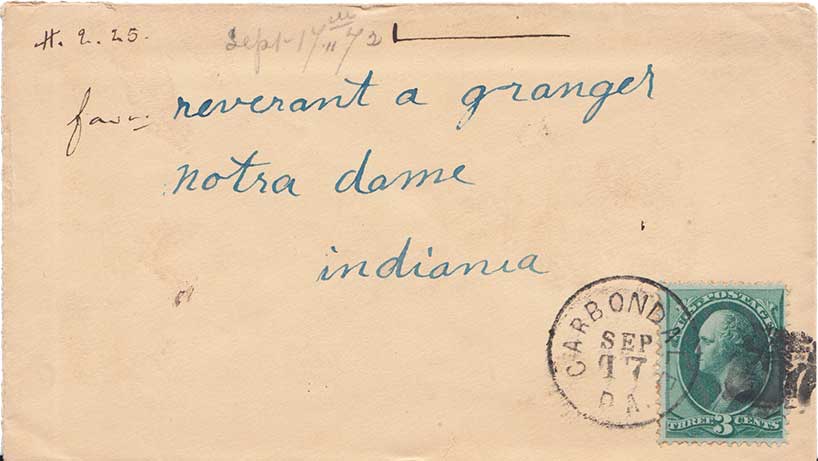 H. 2. 25.
Sept 17 72
favr.
reverant a granger
notra dame
indiania
CARBONDALE
SEP
17
PA.
U.S. POSTAGE
THREE 3 CENTS